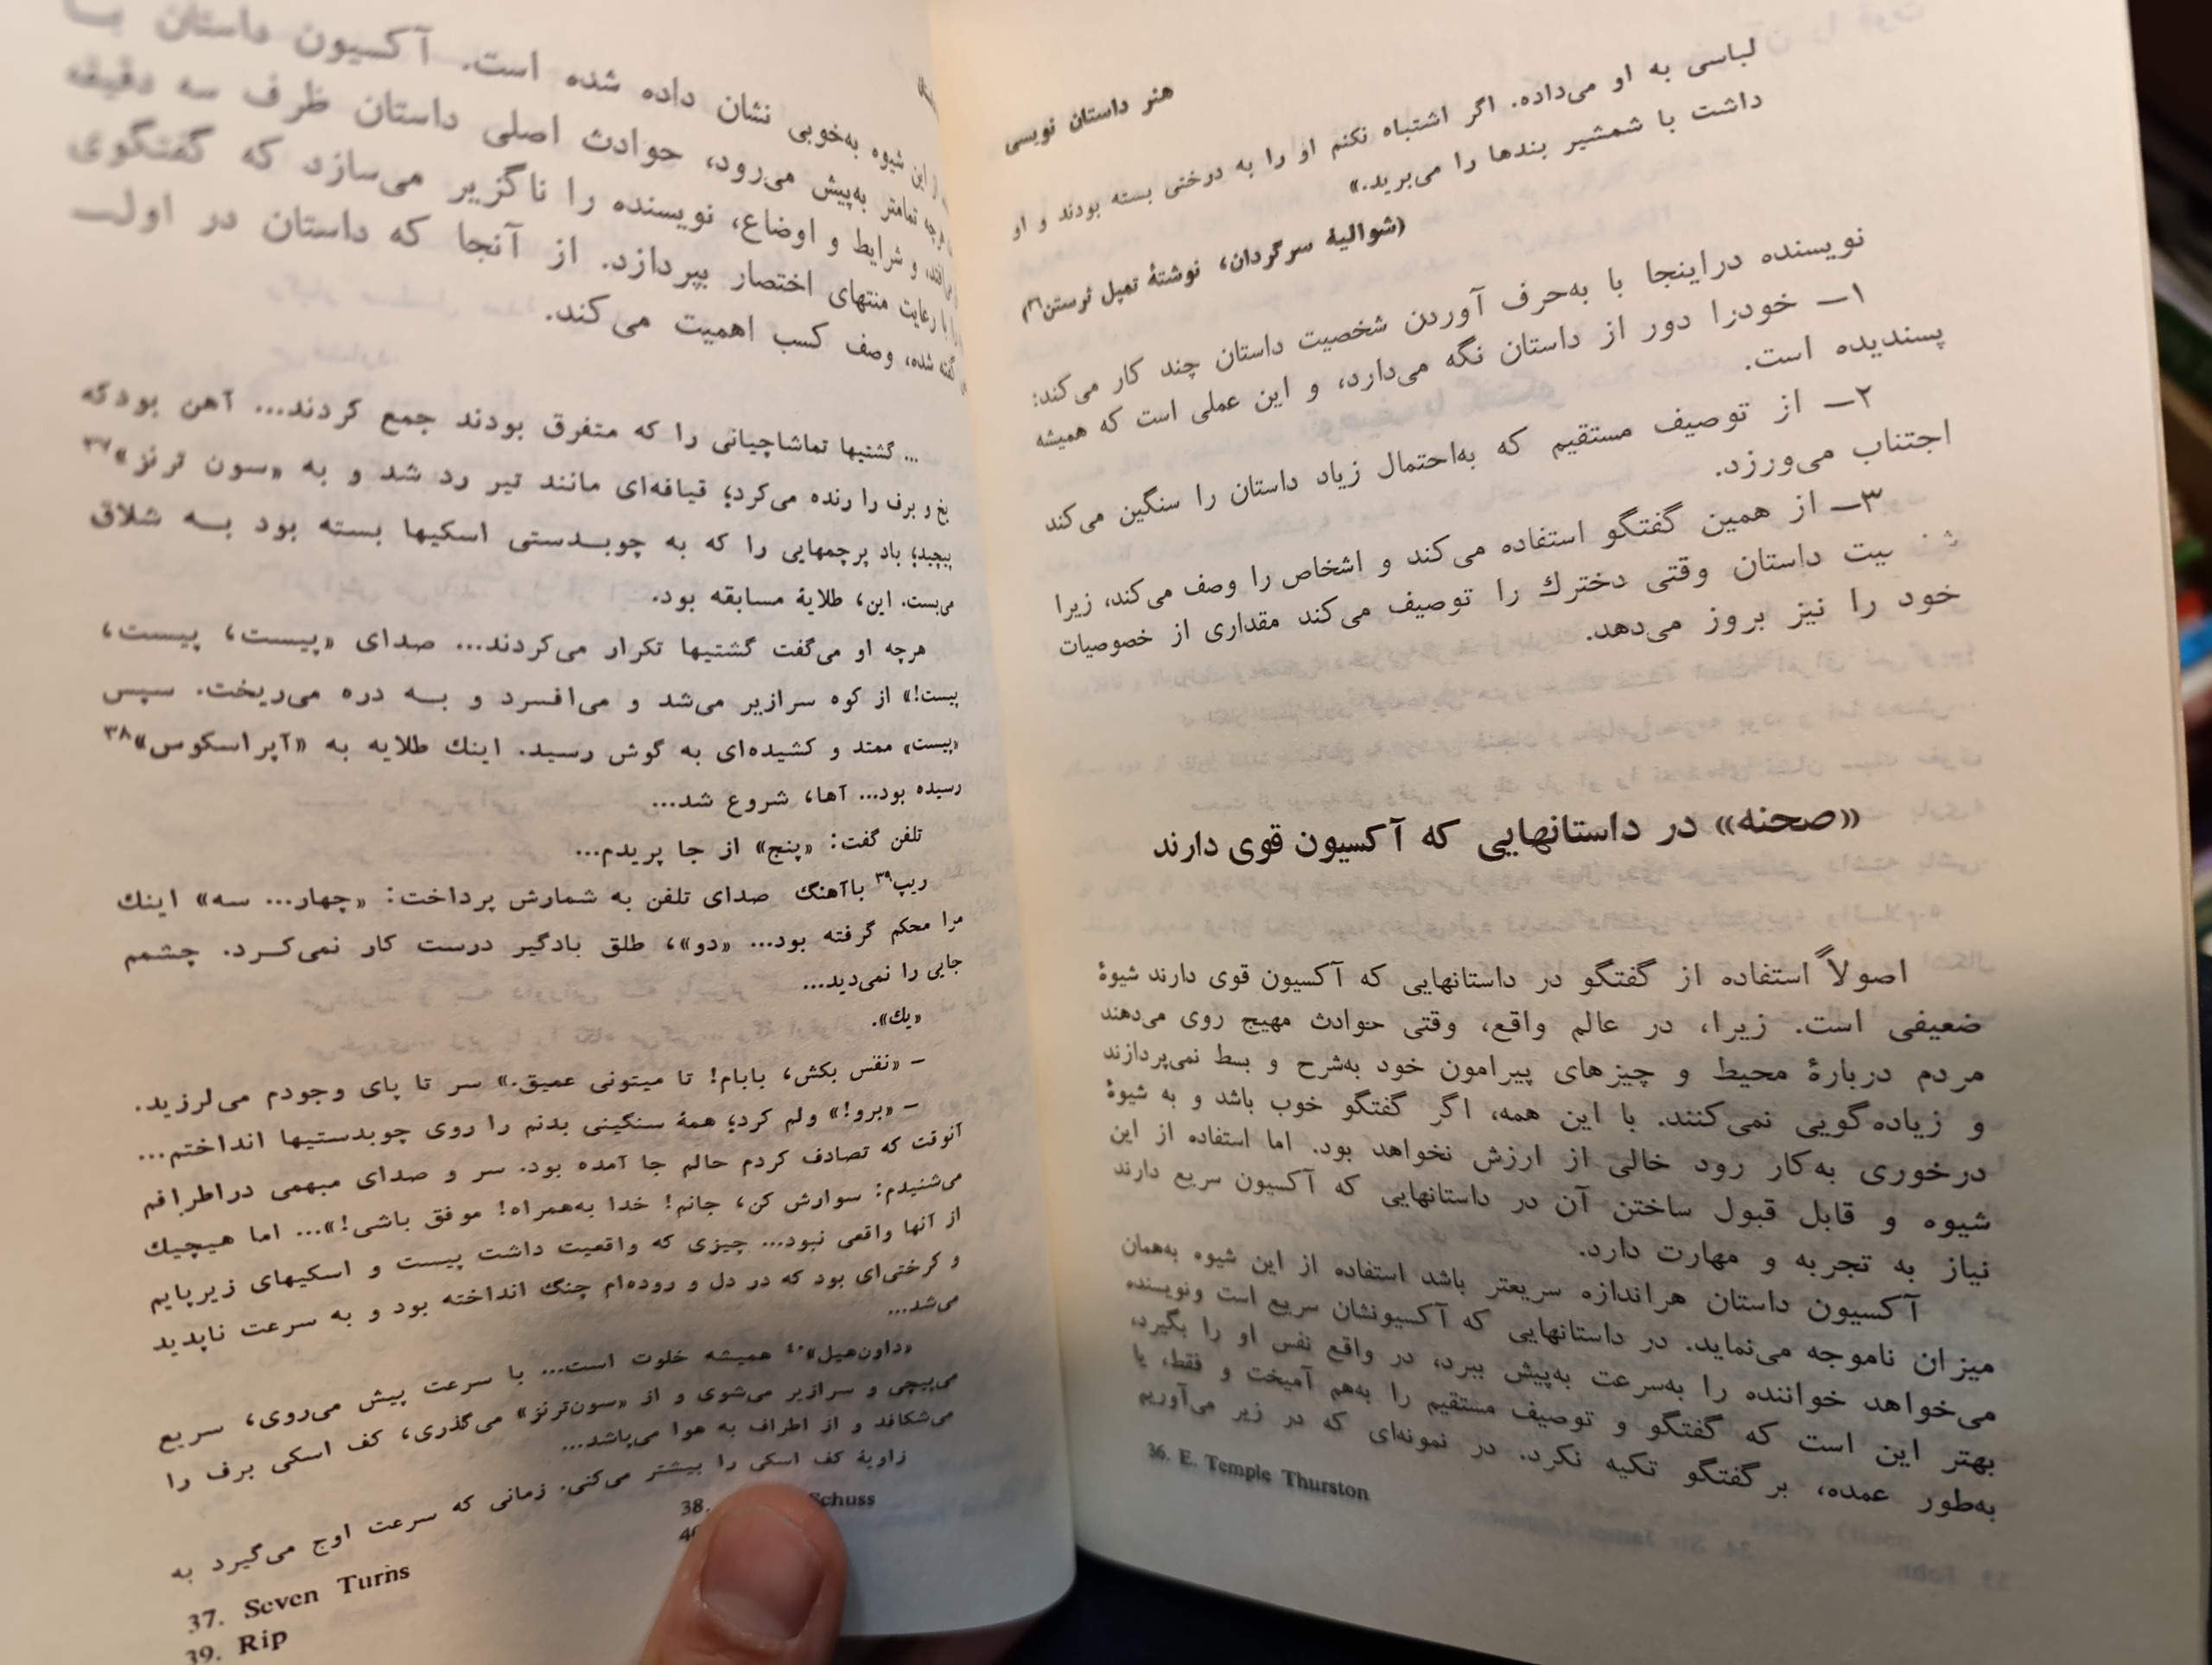 هنر داستان نویسی
لباسی به او می‌داده. اگر اشتباه نکنم او را به درختی بسته بودند و او
داشت با شمشیر بندها را می‌برید.»
(شوالیهٔ سرگردان، نوشتهٔ تمپل ثرستن۳۶)
نویسنده دراینجا با به‌حرف آوردن شخصیت داستان چند کار می‌کند:
۱ــ خودرا دور از داستان نگه می‌دارد، و این عملی است که همیشه
پسندیده است.
۲ــ از توصیف مستقیم که به‌احتمال زیاد داستان را سنگین می‌کند
اجتناب می‌ورزد.
۳ــ از همین گفتگو استفاده می‌کند و اشخاص را وصف می‌کند، زیرا
داستان وقتی دخترك را توصیف می‌کند مقداری از خصوصیات
خود را نیز بروز می‌دهد.
«صحنه» در داستانهایی که آکسیون قوی دارند
اصولاً استفاده از گفتگو در داستانهایی که آکسیون قوی دارند شیوهٔ
ضعیفی است. زیرا، در عالم واقع، وقتی حوادث مهیج روی می‌دهند
مردم دربارهٔ محیط و چیزهای پیرامون خود به‌شرح و بسط نمی‌پردازند
و زیاده‌گویی نمی‌کنند. با این همه، اگر گفتگو خوب باشد و به شیوهٔ
درخوری به‌کار رود خالی از ارزش نخواهد بود. اما استفاده از این
شیوه و قابل قبول ساختن آن در داستانهایی که آکسیون سریع دارند
نیاز به تجربه و مهارت دارد.
آکسیون داستان هراندازه سریعتر باشد استفاده از این شیوه به‌همان
میزان ناموجه می‌نماید. در داستانهایی که آکسیونشان سریع است ونویسنده
می‌خواهد خواننده را به‌سرعت به‌پیش ببرد، در واقع نفس او را بگیرد،
بهتر این است که گفتگو و توصیف مستقیم را به‌هم آمیخت و فقط، یا
به‌طور عمده، بر گفتگو تکیه نکرد. در نمونه‌ای که در زیر می‌آوریم
36. E. Temple Thurston
از این شیوه به‌خوبی نشان داده شده است. آکسیون داستان بــا
هرچه تمامتر به‌پیش می‌رود، حوادث اصلی داستان ظرف سه دقیقه
و شرایط و اوضاع، نویسنده را ناگزیر می‌سازد که گفتگوی
با رعایت منتهای اختصار بپردازد. از آنجا که داستان در اول‌ــ
گفته شده، وصف کسب اهمیت می‌کند.
... گشتیها تماشاچیانی را که متفرق بودند جمع کردند... آهن بودکه
یخ و برف را رنده می‌کرد؛ قیافه‌ای مانند تیر رد شد و به «سون ترنز»۳۷
پیچید؛ باد پرچمهایی را که به چوبــدستی اسکیها بسته بود بــه شلاق
می‌بست. این، طلایهٔ مسابقه بود.
هرچه او می‌گفت گشتیها تکرار می‌کردند... صدای «پیست، پیست،
پیست!» از کوه سرازیر می‌شد و می‌افسرد و بــه دره می‌ریخت. سپس
«پیست» ممتد و کشیده‌ای به گوش رسید. اینك طلایه به «آپراسکوس»۳۸
رسیده بود... آها، شروع شد...
تلفن گفت: «پنج» از جا پریدم...
ریپ۳۹ باآهنگ صدای تلفن به شمارش پرداخت: «چهار... سه» اینك
مرا محکم گرفته بود... «دو»، طلق بادگیر درست کار نمی‌کــرد. چشمم
جایی را نمی‌دید...
«یك».
– «نفس بکش، بابام! تا میتونی عمیق.» سر تا پای وجودم می‌لرزید.
– «برو!» ولم کرد؛ همهٔ سنگینی بدنم را روی چوبدستیها انداختم...
آنوقت که تصادف کردم حالم جا آمده بود. سر و صدای مبهمی دراطرافم
می‌شنیدم: سوارش کن، جانم! خدا به‌همراه! موفق باشی!»... اما هیچیك
از آنها واقعی نبود... چیزی که واقعیت داشت پیست و اسکیهای زیرپایم
و کرختی‌ای بود که در دل و روده‌ام چنگ انداخته بود و به سرعت ناپدید
می‌شد...
«داون‌هیل»۴۰ همیشه خلوت است... با سرعت پیش می‌روی، سریع
می‌پیچی و سرازیر می‌شوی و از «سون‌ترنز» می‌گذری، کف اسکی برف را
می‌شکافد و از اطراف به هوا می‌پاشد...
زاویهٔ کف اسکی را بیشتر می‌کنی. زمانی که سرعت اوج می‌گیرد به
37. Seven Turns
38. Schuss
39. Rip